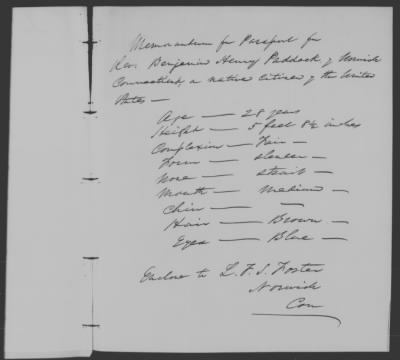 Memorandum for Passport for
Rev. Benjamin Henry Paddock of Norwich
Connecticut, a native citizen of the United
States —
Age — 28 years
Height — 5 feet 8½ inches
Complexion — Fair —
Form — slender —
Nose — strait —
Mouth — Medium —
Chin — —
Hair — Brown —
Eyes — Blue —
Enclose to L. F. S. Foster
Norwich
Con